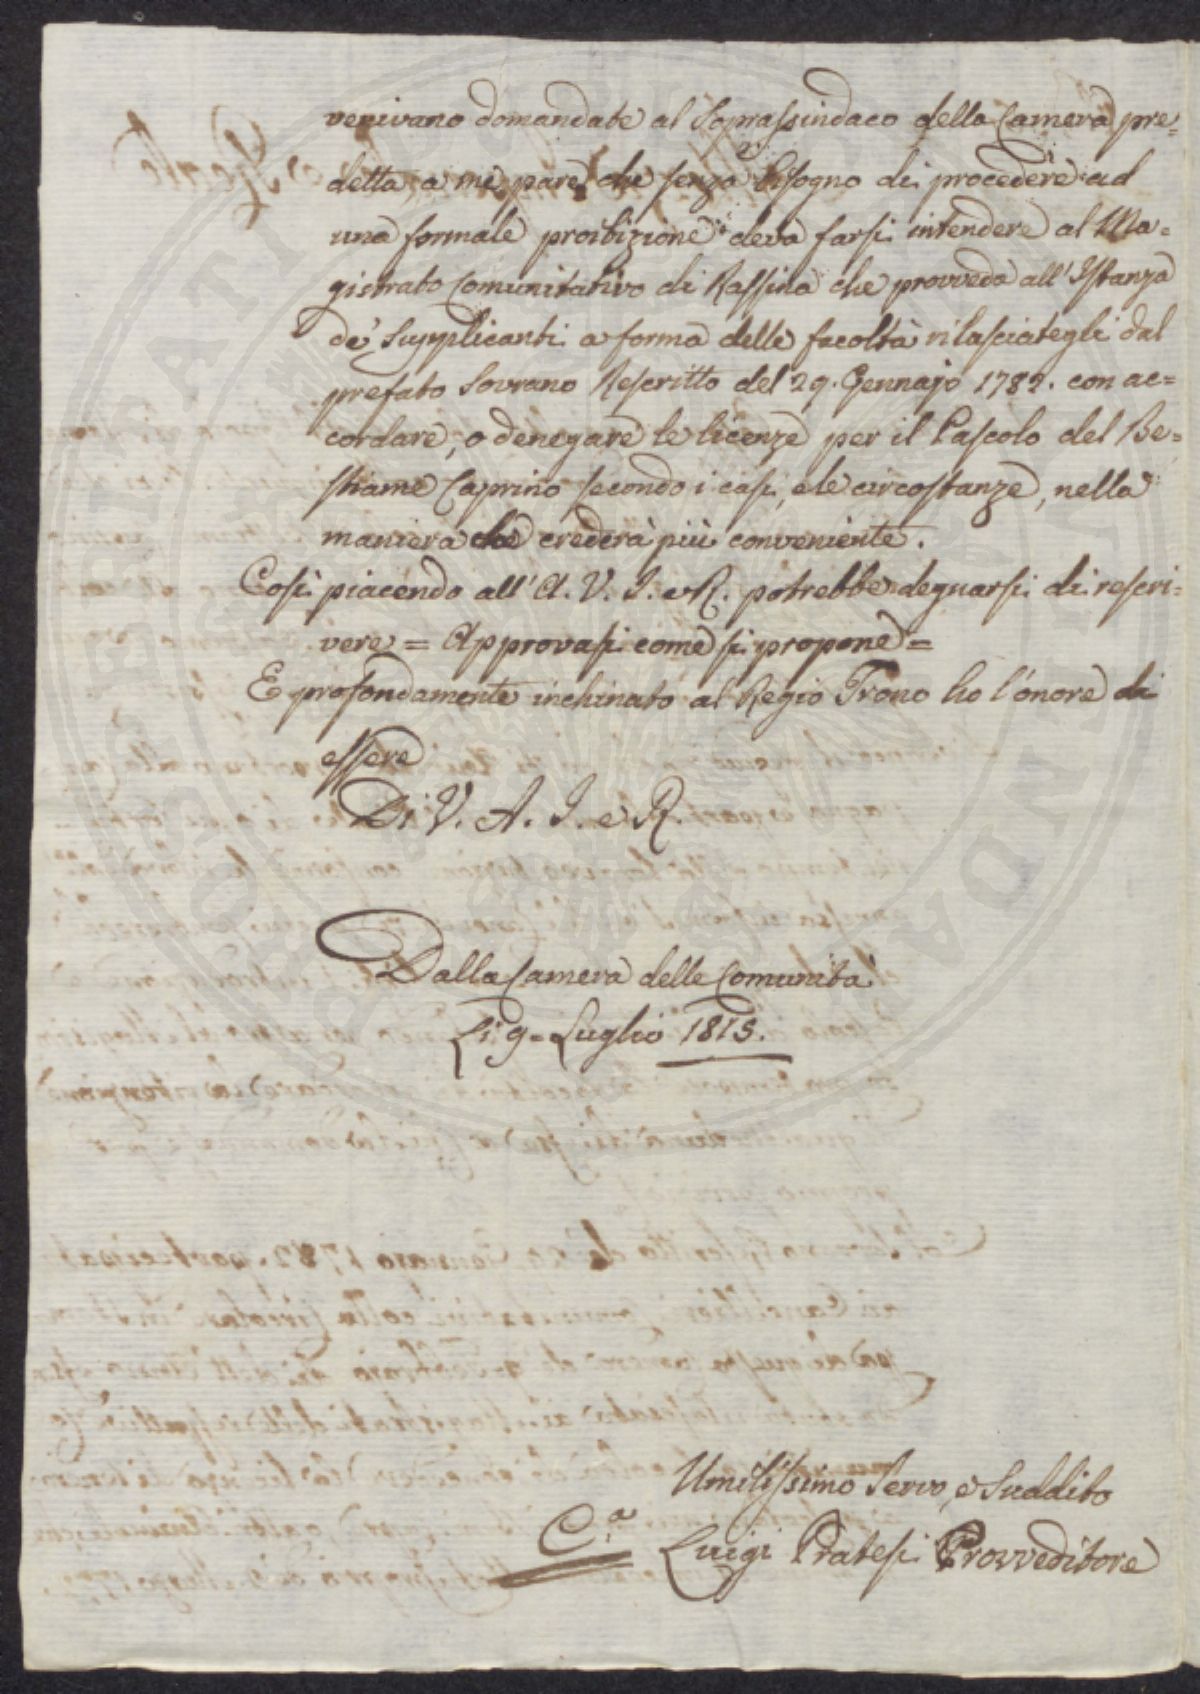 venivano domandate al Soprassindaco della Camera pre=
detta, a me pare che senza bisogno di procedere ad
una formale proibizione deva farsi intendere al Ma=
gistrato Comunitativo di Rassina che provveda all'Istanza
de' Supplicanti a forma delle facoltà rilasciategli dal
prefato Sovrano Rescritto del 29. Gennajo 1782. con ac=
cordare, o denegare le licenze per il Pascolo del Be=
stiame Caprino secondo i casi, e le circostanze, nella
maniera che crederà più conveniente.
Così piacendo all'A. V. I. e R. potrebbe degnarsi di rescri=
vere = Approvasi come si propone =
E profondamente inchinato al Regio Trono ho l'onore di
essere
Di V. A. I. e R.
Dalla Camera delle Comunità
Li 9. Luglio 1815.
Umilissimo Servo, e Suddito
C.a Luigi Pratesi Provveditore